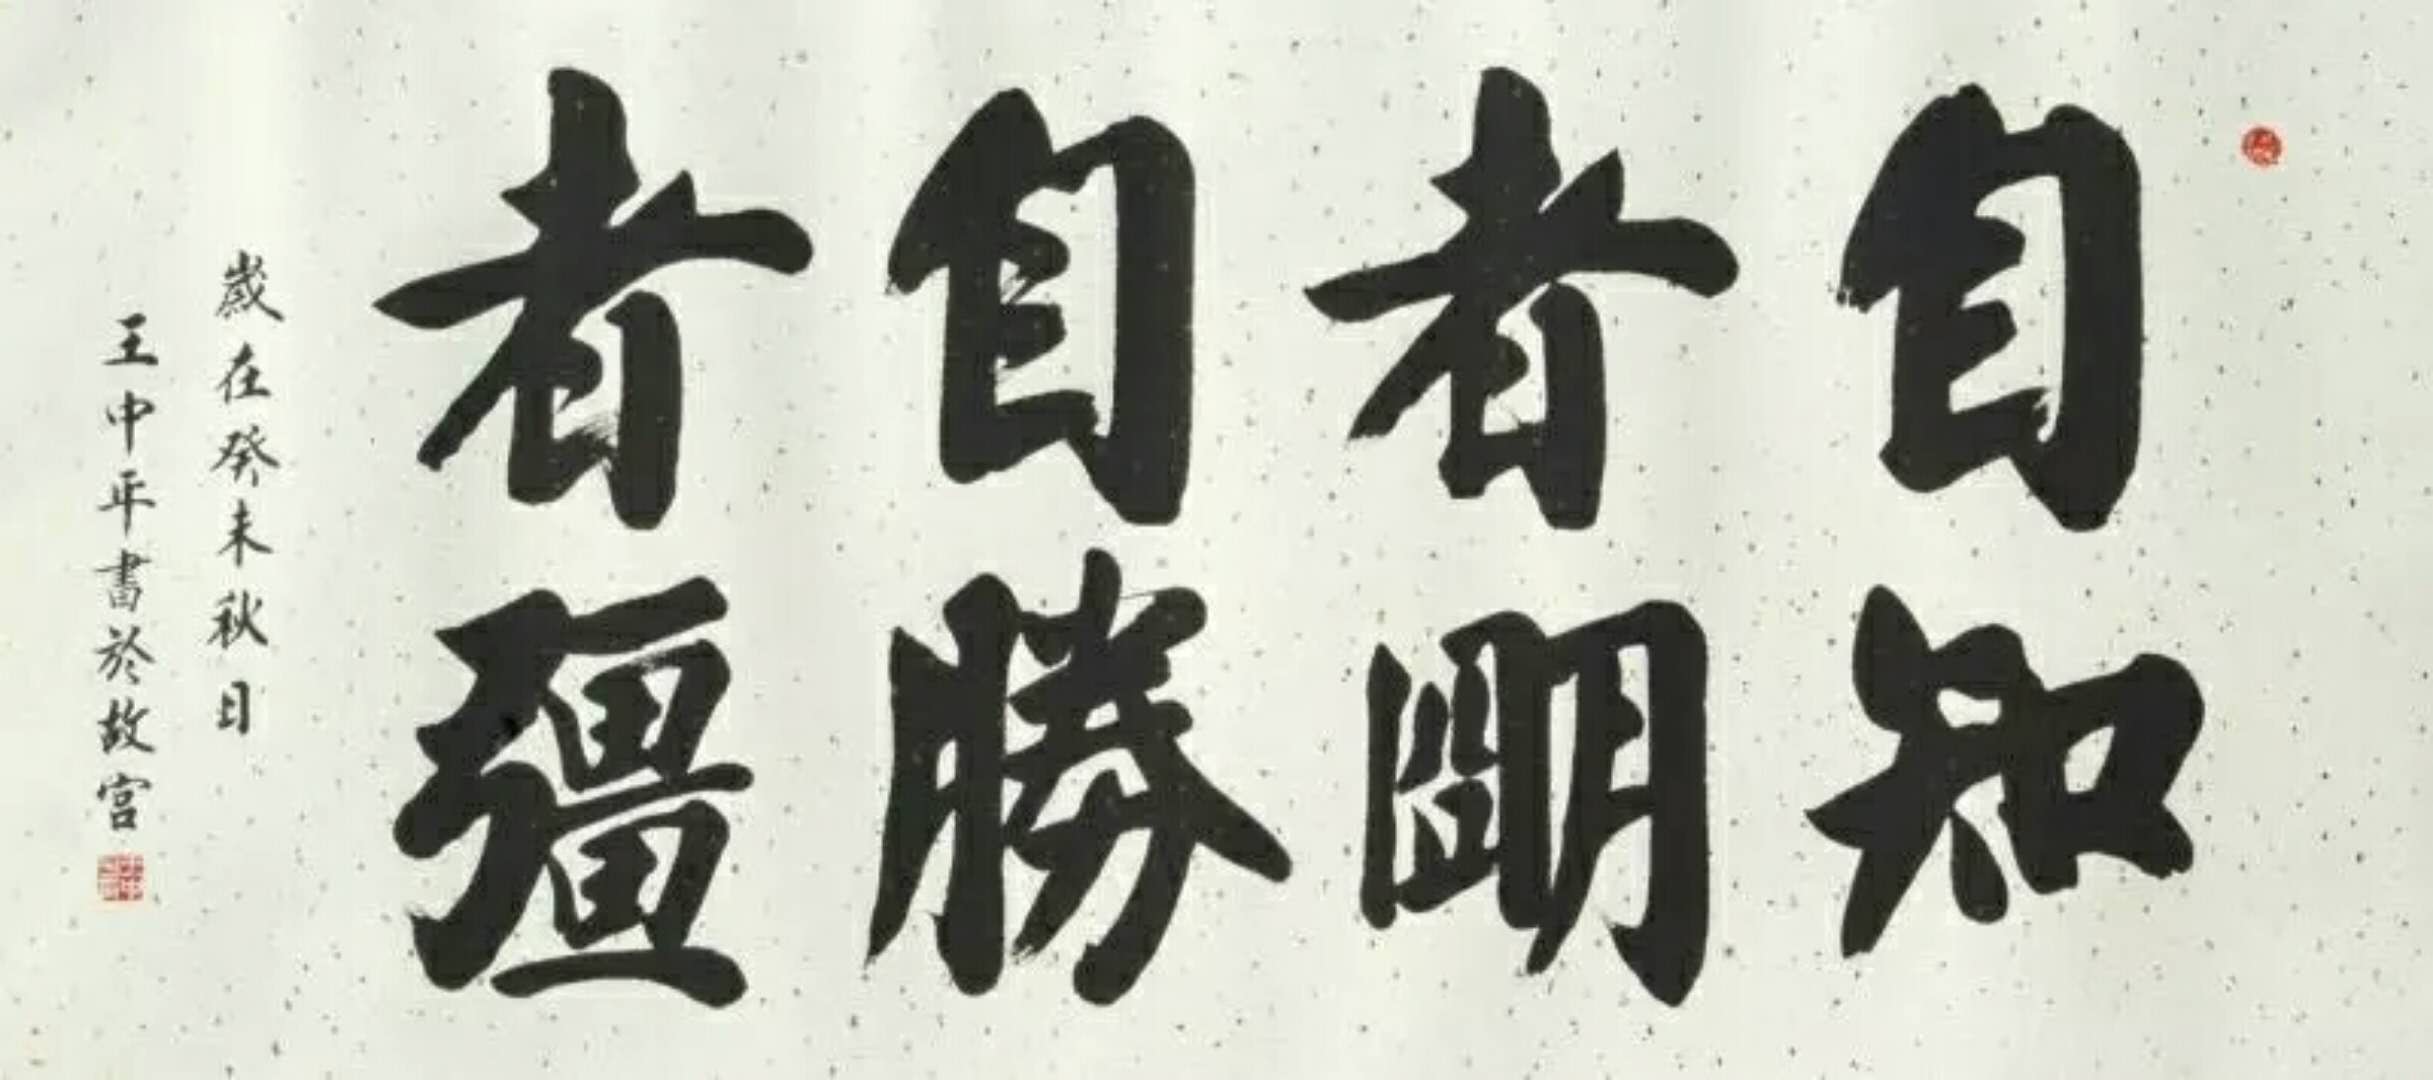 自知
者朙
自勝
者彊
歲在癸未秋日
王中年書於故宮